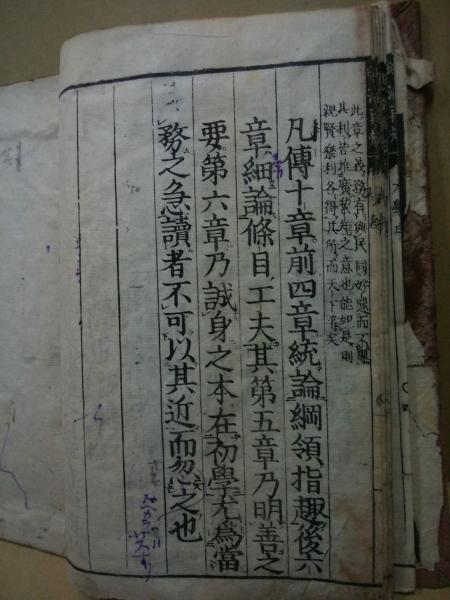 此章之義務在與民同好惡而不專
其利皆推廣絜矩之意也能如是則
親賢樂利各得其所而天下平矣
凡傳十章前四章統論綱領指趣後六
章細論條目工夫其第五章乃明善之
要第六章乃誠身之本在初學尤為當
務之急讀者不可以其近而忽之也